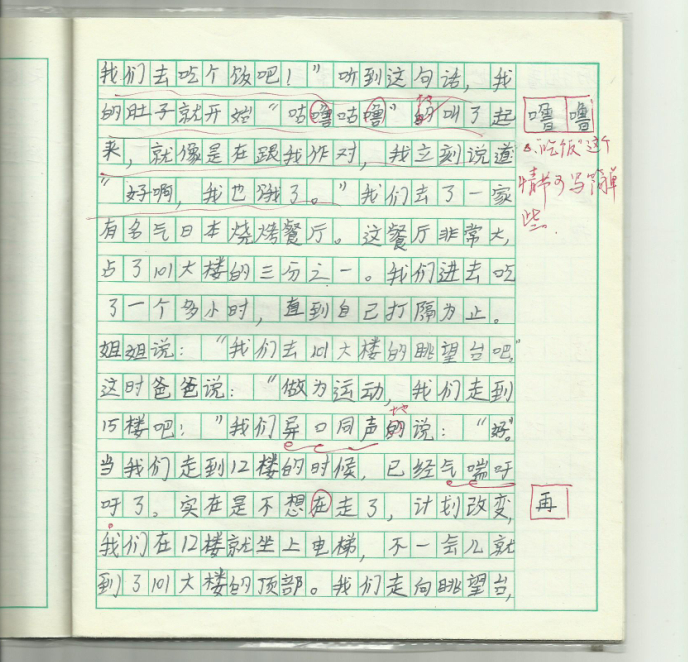 我们去吃个饭吧！”听到这句话，我
的肚子就开始“咕噜咕噜”的叫了起
来，就像是在跟我作对，我立刻说道
“好啊，我也饿了。”我们去了一家
有名气日本烧烤餐厅。这餐厅非常大，
占了101大楼的三分之一。我们进去吃
了一个多小时，直到自己打隔为止。
姐姐说：“我们去101大楼的眺望台吧”
这时爸爸说：“做为运动，我们走到
15楼吧！”我们异口同声的说：“好。
当我们走到12楼的时候，已经气喘吁
吁了。实在是不想在走了，计划改变，
我们在12楼就坐上电梯，不一会儿就
到了101大楼的顶部。我们走向眺望台，
噜噜
“吃饭”这个
情节可写简单
些.
地
地
再